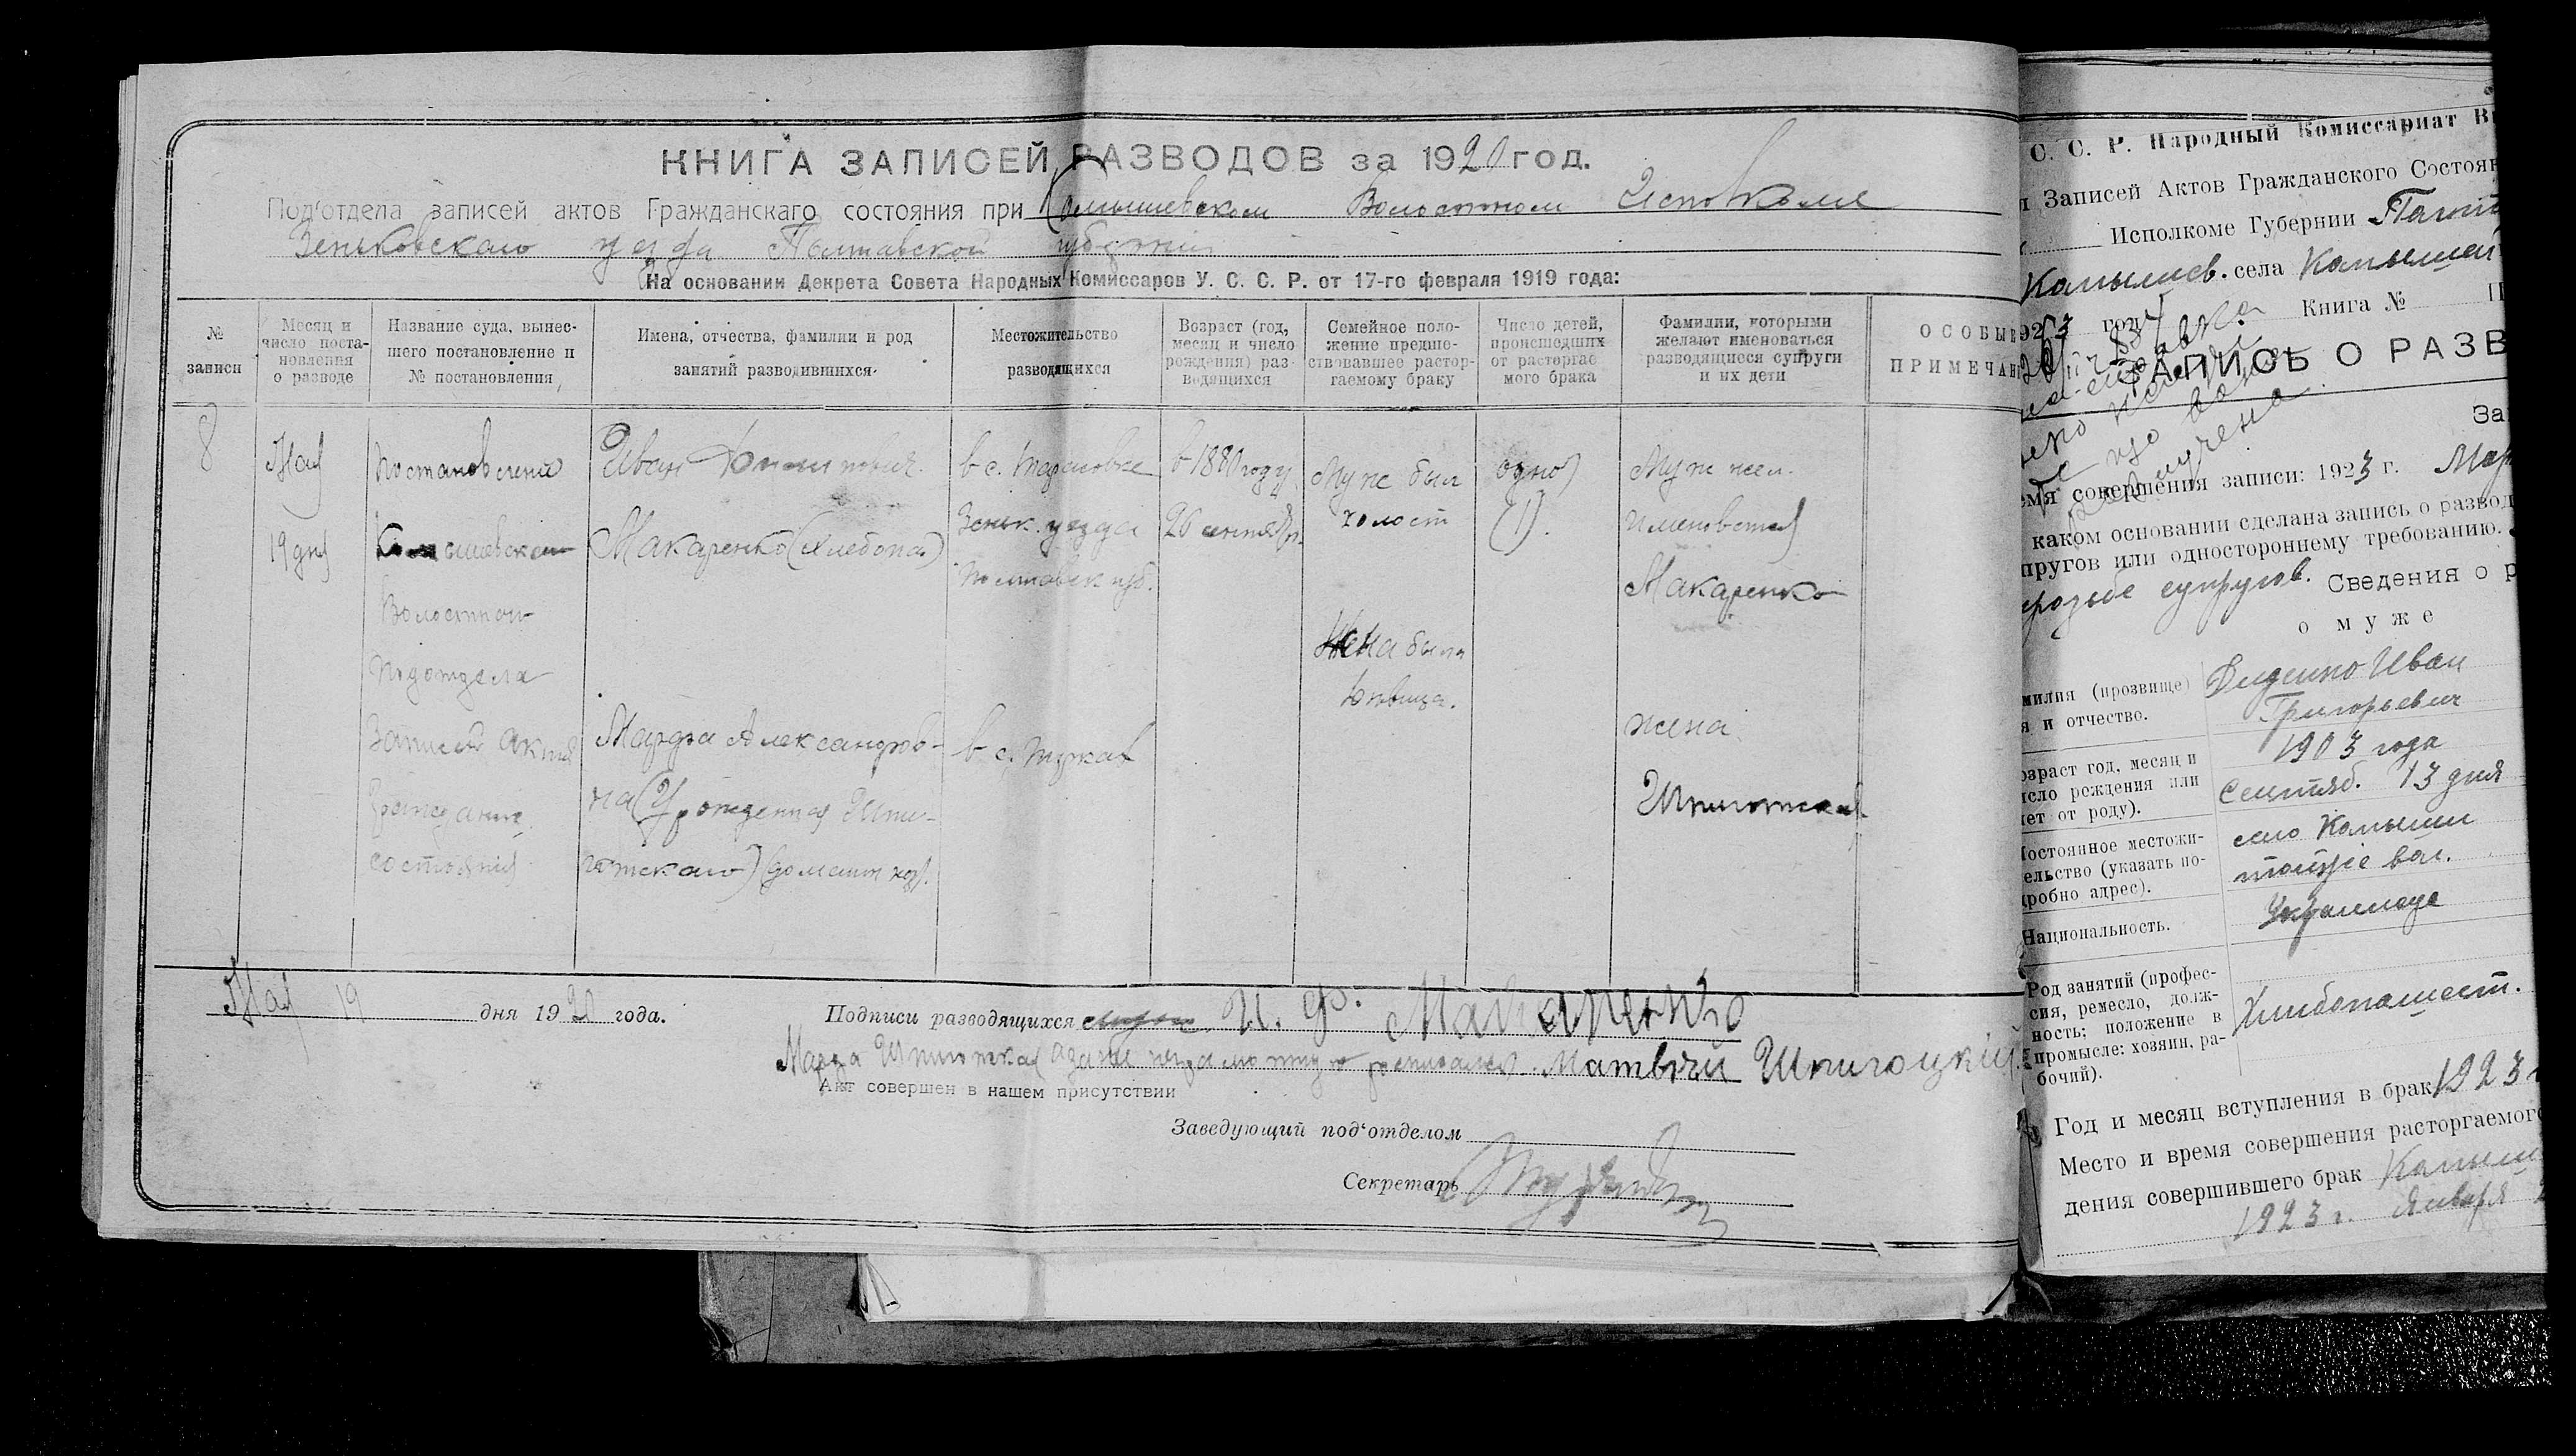 КНИГА ЗАПИСЕЙ РАЗВОДОВ за 1920 год.
Под‘отдела записей актов Гражданскаго состояния при Комышевском Волостном Исполкоме
Зеньковскаго уезда Полтавской губернии
На основании Декрета Совета Народных Комиссаров У. С. С. Р. от 17-го февраля 1919 года:
№ записи
Месяц и число поста-
новления
о разводе
Название суда, вынес-
шего постановление и
№ постановления
Имена, отчества, фамилии и род
занятий разводившихся.
Местожительство
разводящихся
Возраст (год,
месяц и число
рождения) раз-
водящихся
Семейное поло-
жение предше-
ствовавшее растор-
гаемому браку
Число детей,
происшедших
от расторгае
мого брака
Фамилии, которыми
желают именоваться
разводящиеся супруги
и их дети
ОСОБЫЕ
ПРИМЕЧАН
8
Мая
19 дня
Постановление
Комышевскаго
Волостного
Подотдела
Записей актов
Гражданск.
состояния
Иван
Макаренко (хлебопа)
Марфа Александров-
на (Урожденная Шпи-
готскаго) (домашн хоз).
в с.
Зеньк. уезда
Полтавск губ.
в с.
в 1881 году
26 сентября.
Муж был
холост
Жена была
девица.
одно
(1).
Муж жел.
именоватся
Макаренко
жена
Шпиготская
Мая 19 дня 1920 года.
Подписи разводящихся И. Ф. Макаренко
Марфа Шпиготская а за неё неграмотную росписался Матвѣй Шпигоцкій
Акт совершен в нашем присутствии
Заведующий под‘отделом
Секретарь
С. С. Р. Народный Комиссариат В
Записей Актов Гражданского Состоян
Исполкоме Губернии Полт
Камышев. села Камышей
1923 год Книга №
ЗАПИСЬ О РАЗВ
За
емя совершения записи: 1923 г. Мар
каком основании сделана запись о развод
пругов или одностороннему требованию.
супругов.
Сведения о р
о муже
милия (прозвище)
я и отчество.
Диденко Иван
Григорьевич
озраст год, месяц и
исло рождения или
лет от роду).
1903 года
Сентяб. 13 дня
Постоянное местожи-
ельство (указать по-
дробно адрес).
село Камыши
вол.
Национальность.
Род занятий (профес-
сия, ремесло, долж-
ность; положение в
промысле: хозяин, ра-
бочий).
Хлибопашест.
Год и месяц вступления в брак 1923
Место и время совершения расторгаемого
дения совершившего брак Камыш
1923 г. Января